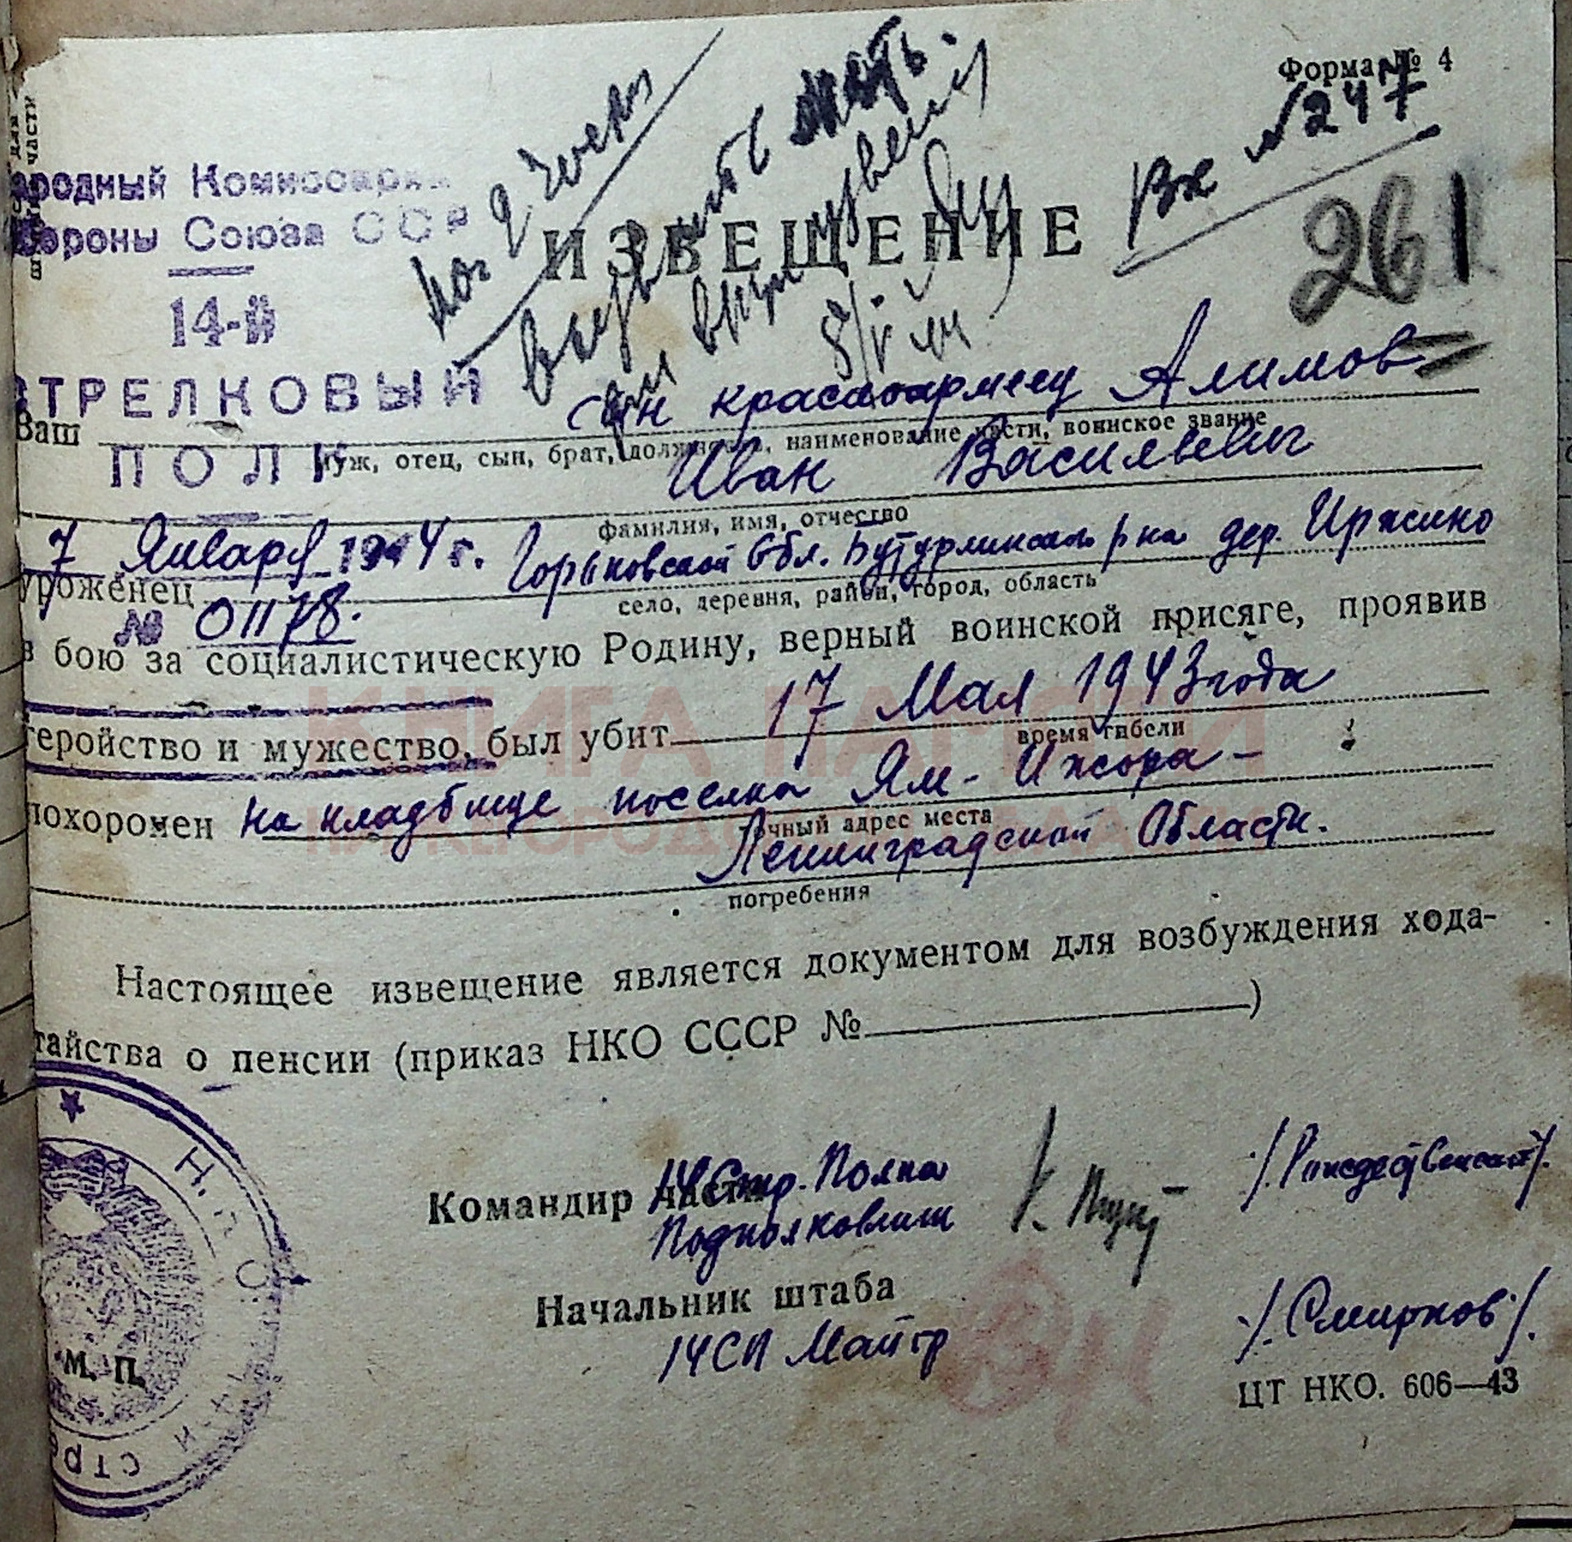 Форма № 4
Вх №247
261
ародный Комиссариа
ороны Союза ССР
14-й
СТРЕЛКОВЫЙ
ПОЛК
вызвать мать
ИЗВЕЩЕНИЕ
Ваш сын красноармеец Алимов
муж, отец, сын, брат, должность, наименование части, воинское звание
Иван Васильевич
фамилия, имя, отчество
7 Января 1944 г.
уроженец Горьковской Обл. Бутурлинского р на дер. Иржино
село, деревня, район, город, область
№ 01178.
в бою за социалистическую Родину, верный воинской присяге, проявив
геройство и мужество, был убит 17 Мая 1943 года
время гибели
похоронен на кладбище поселка Ям-Ижора -
чный адрес места
Ленинградской Области.
погребения
Настоящее извещение является документом для возбуждения хода-
тайства о пенсии (приказ НКО СССР № )
Командир части 14 Стр. Полка
Подполковник /Рождественский/.
Начальник штаба
14СП Майор /Смирнов/.
М. П.
Н.К.О.
ЦТ НКО. 606—43
КНИГА ПАМЯТИ
НИЖЕГОРОДСКОЙ ОБЛАСТИ